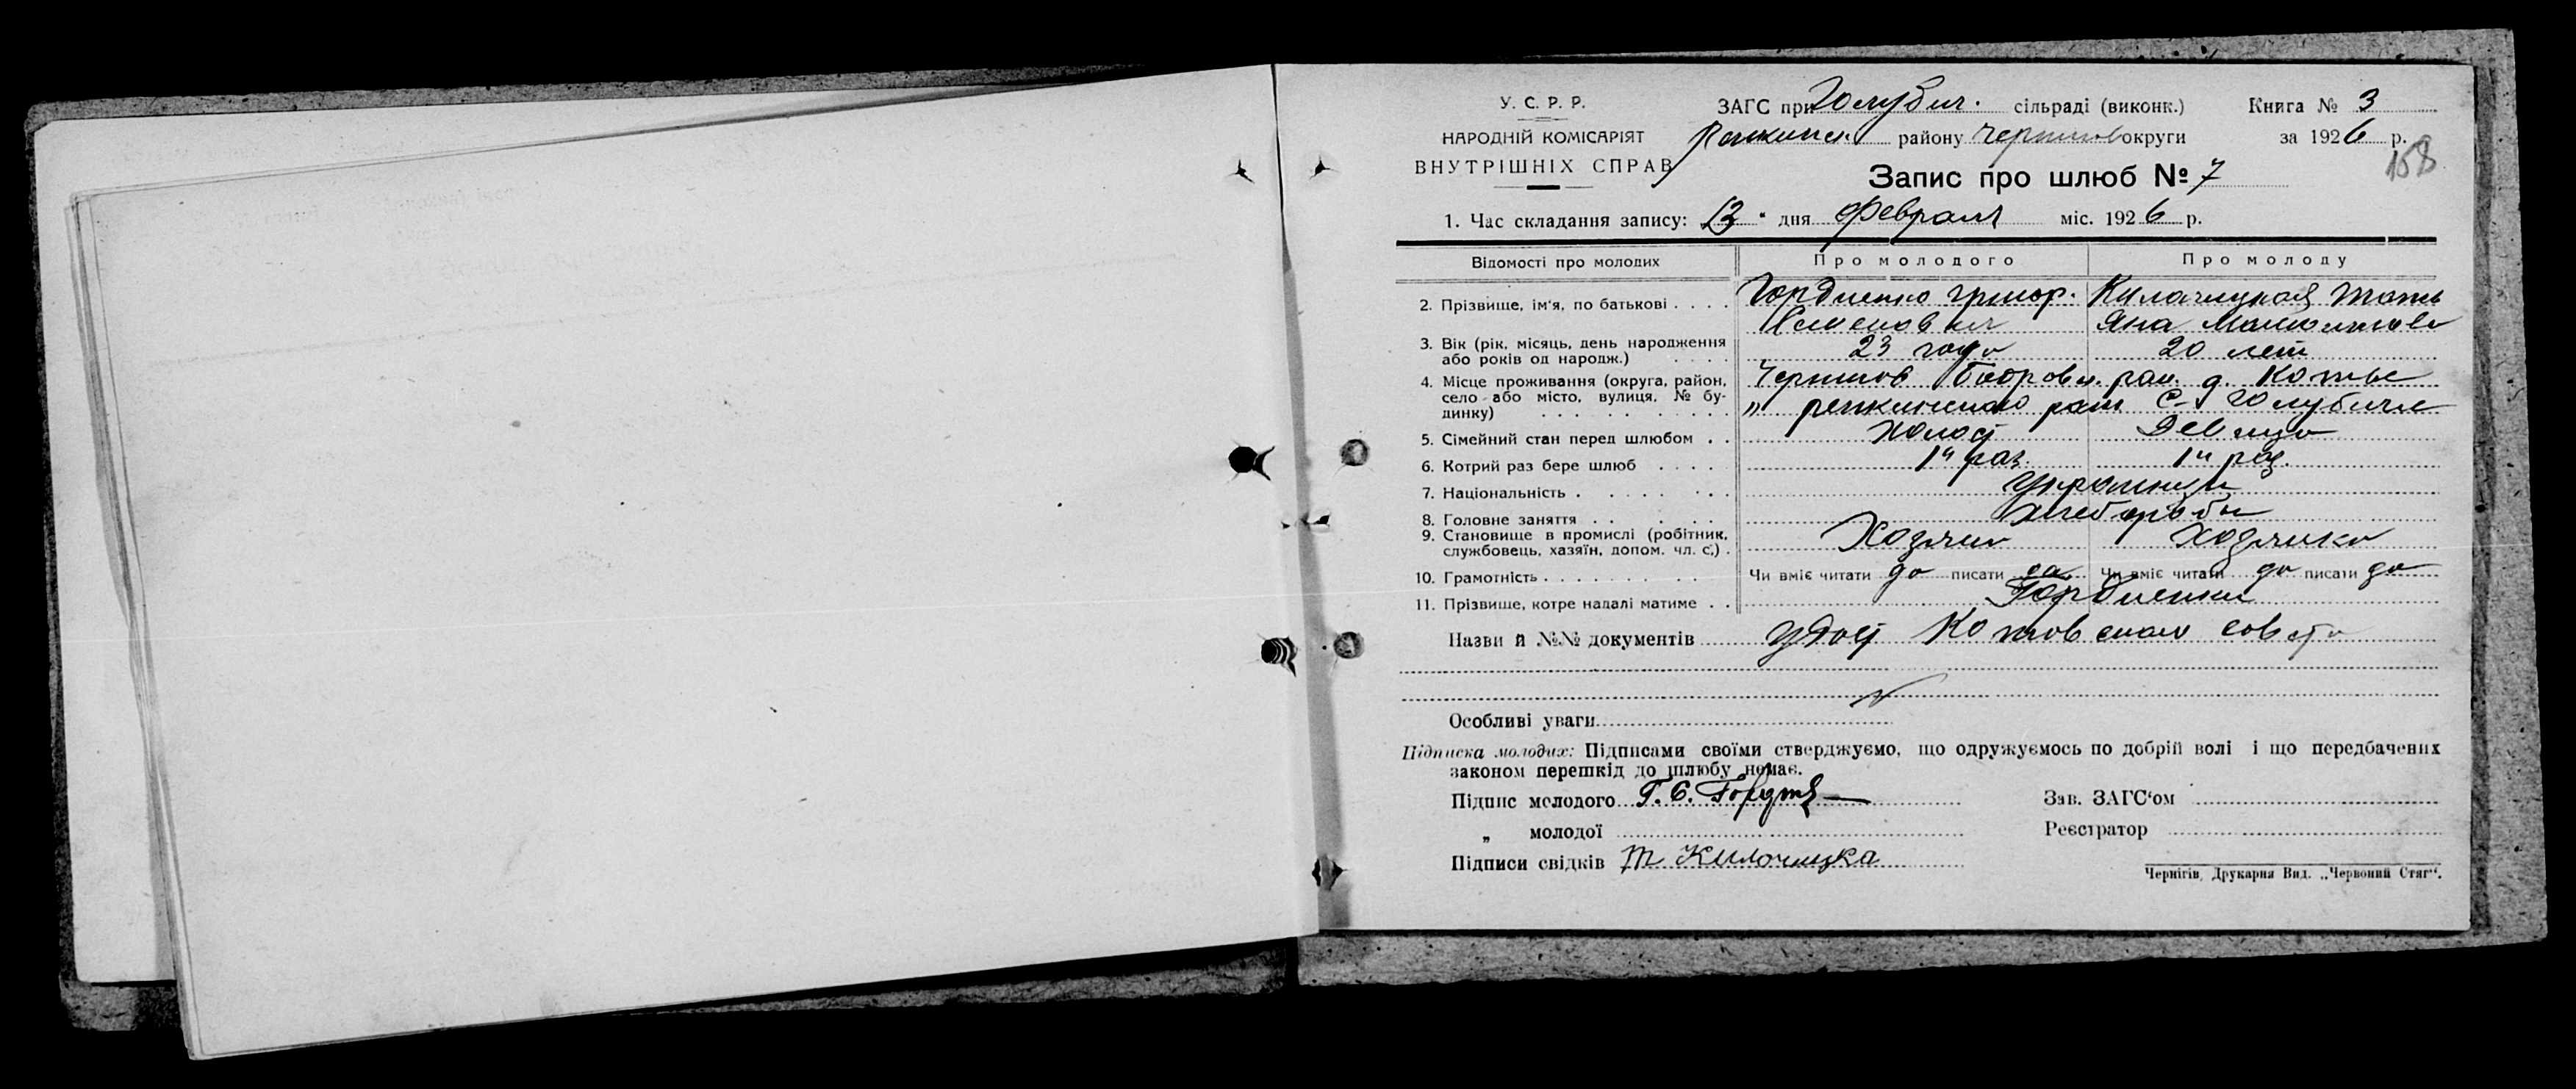 У. С. Р. Р.
НАРОДНІЙ КОМІСАРІЯТ
ВНУТРІШНІХ СПРАВ
ЗАГС при Голубич. сільраді (виконк.) Книга № 3
Репкинск району Чернигов округи за 1926 р.
158
Запис про шлюб № 7
1. Час складання запису: 13 " дня Февраля міс. 1926 р.
Відомості про молодих Про молодого Про молоду
2. Прізвище, ім'я, по батькові . . . . Гордиенко Григор. Килочицкая Тать
Семенович яна Максимовн
3. Вік (рік, місяць, день народження 23 года 20 лет
або років од народж.) . . . .
4. Місце проживання (округа, район, Чернигов Бобров. рай. д. Котье
село або місто, вулиця, № бу- " репкинского рай С- Голубичи
динку) . . . . . . . . .
5. Сімейний стан перед шлюбом . . Холост Девица
6. Котрий раз бере шлюб . . . . 1й раз. 1й раз.
7. Національність . . . . . . . Украинцы
8. Головне заняття . . . . . . хлеборобы
9. Становище в промислі (робітник, Хозяин Хозяйка
службовець, хазяїн, допом. чл. с.) .
10. Грамотність . . . . . . . . Чи вміє читати да писати да Чи вміє читати да писати да
11. Прізвище, котре надалі матиме . . Гордиенки
Назви й №№ документів удост Котовского совета
Особливі уваги
Підписка молодих: Підписами своїми стверджуємо, що одружуємось по добрій волі і що передбачених
законом перешкід до шлюбу немає.
Підпис молодого Г. С. Зав. ЗАГС'ом
„ молодої Реєстратор
Підписи свідків Т Килочицка
Чернігів, Друкарня Вид. „Червоний Стяг".